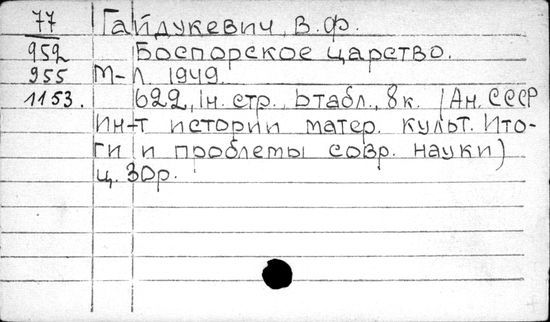 77 Гайдукевич, В.Ф.
952 Боспорское царство.
955 М-Л 1949.
1153. 622, 1н. стр., 6табл., 8к. (Ан. СССР
Ин-т истории матер. культ. Ито-
ги и проблемы совр. науки)
ц. 30р.